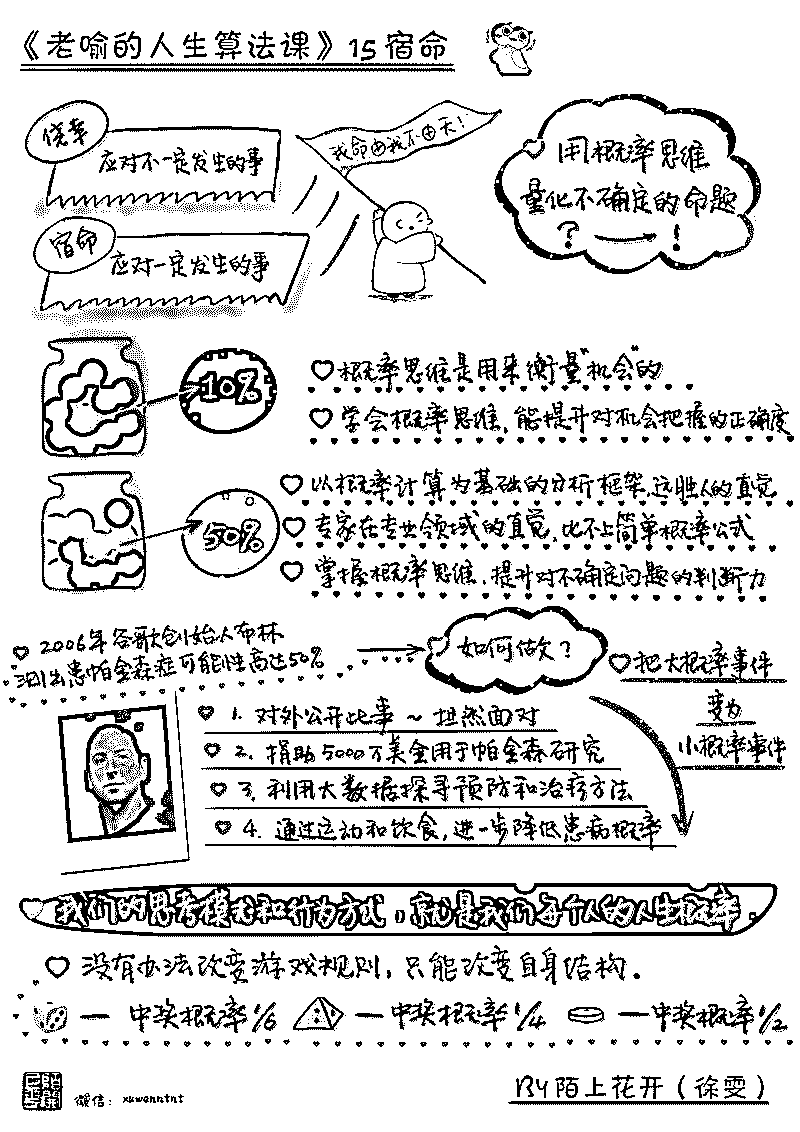 《老喻的人生算法课》15宿命
侥幸
应对不一定发生的事
我命由我不由天!
用概率思维
量化不确定的命题
? → !
宿命
应对一定发生的事
10%
概率思维是用来衡量"机会"的
学会概率思维,能提升对机会把握的正确度
50%
以概率计算为基础的分析框架,远胜人的直觉
专家在专业领域的直觉,比不上简单概率公式
掌握概率思维,提升对不确定问题的判断力
2006年谷歌创始人布林
测出患帕金森症可能性高达50%
如何做欠?
把大概率事件
变为
小概率事件
1. 对外公开此事 ~ 坦然面对
2. 捐助5000万美金用于帕金森研究
3. 利用大数据探寻预防和治疗方法
4. 通过运动和饮食,进一步降低患病概率
我们的思考模式和行为方式,就是我们每个人的人生概率。
没有办法改变游戏规则,只能改变自身结构.
— 中奖概率1/6 — 中奖概率1/4 — 中奖概率1/2
微信: xuwenntnt
BY陌上花开(徐雯)